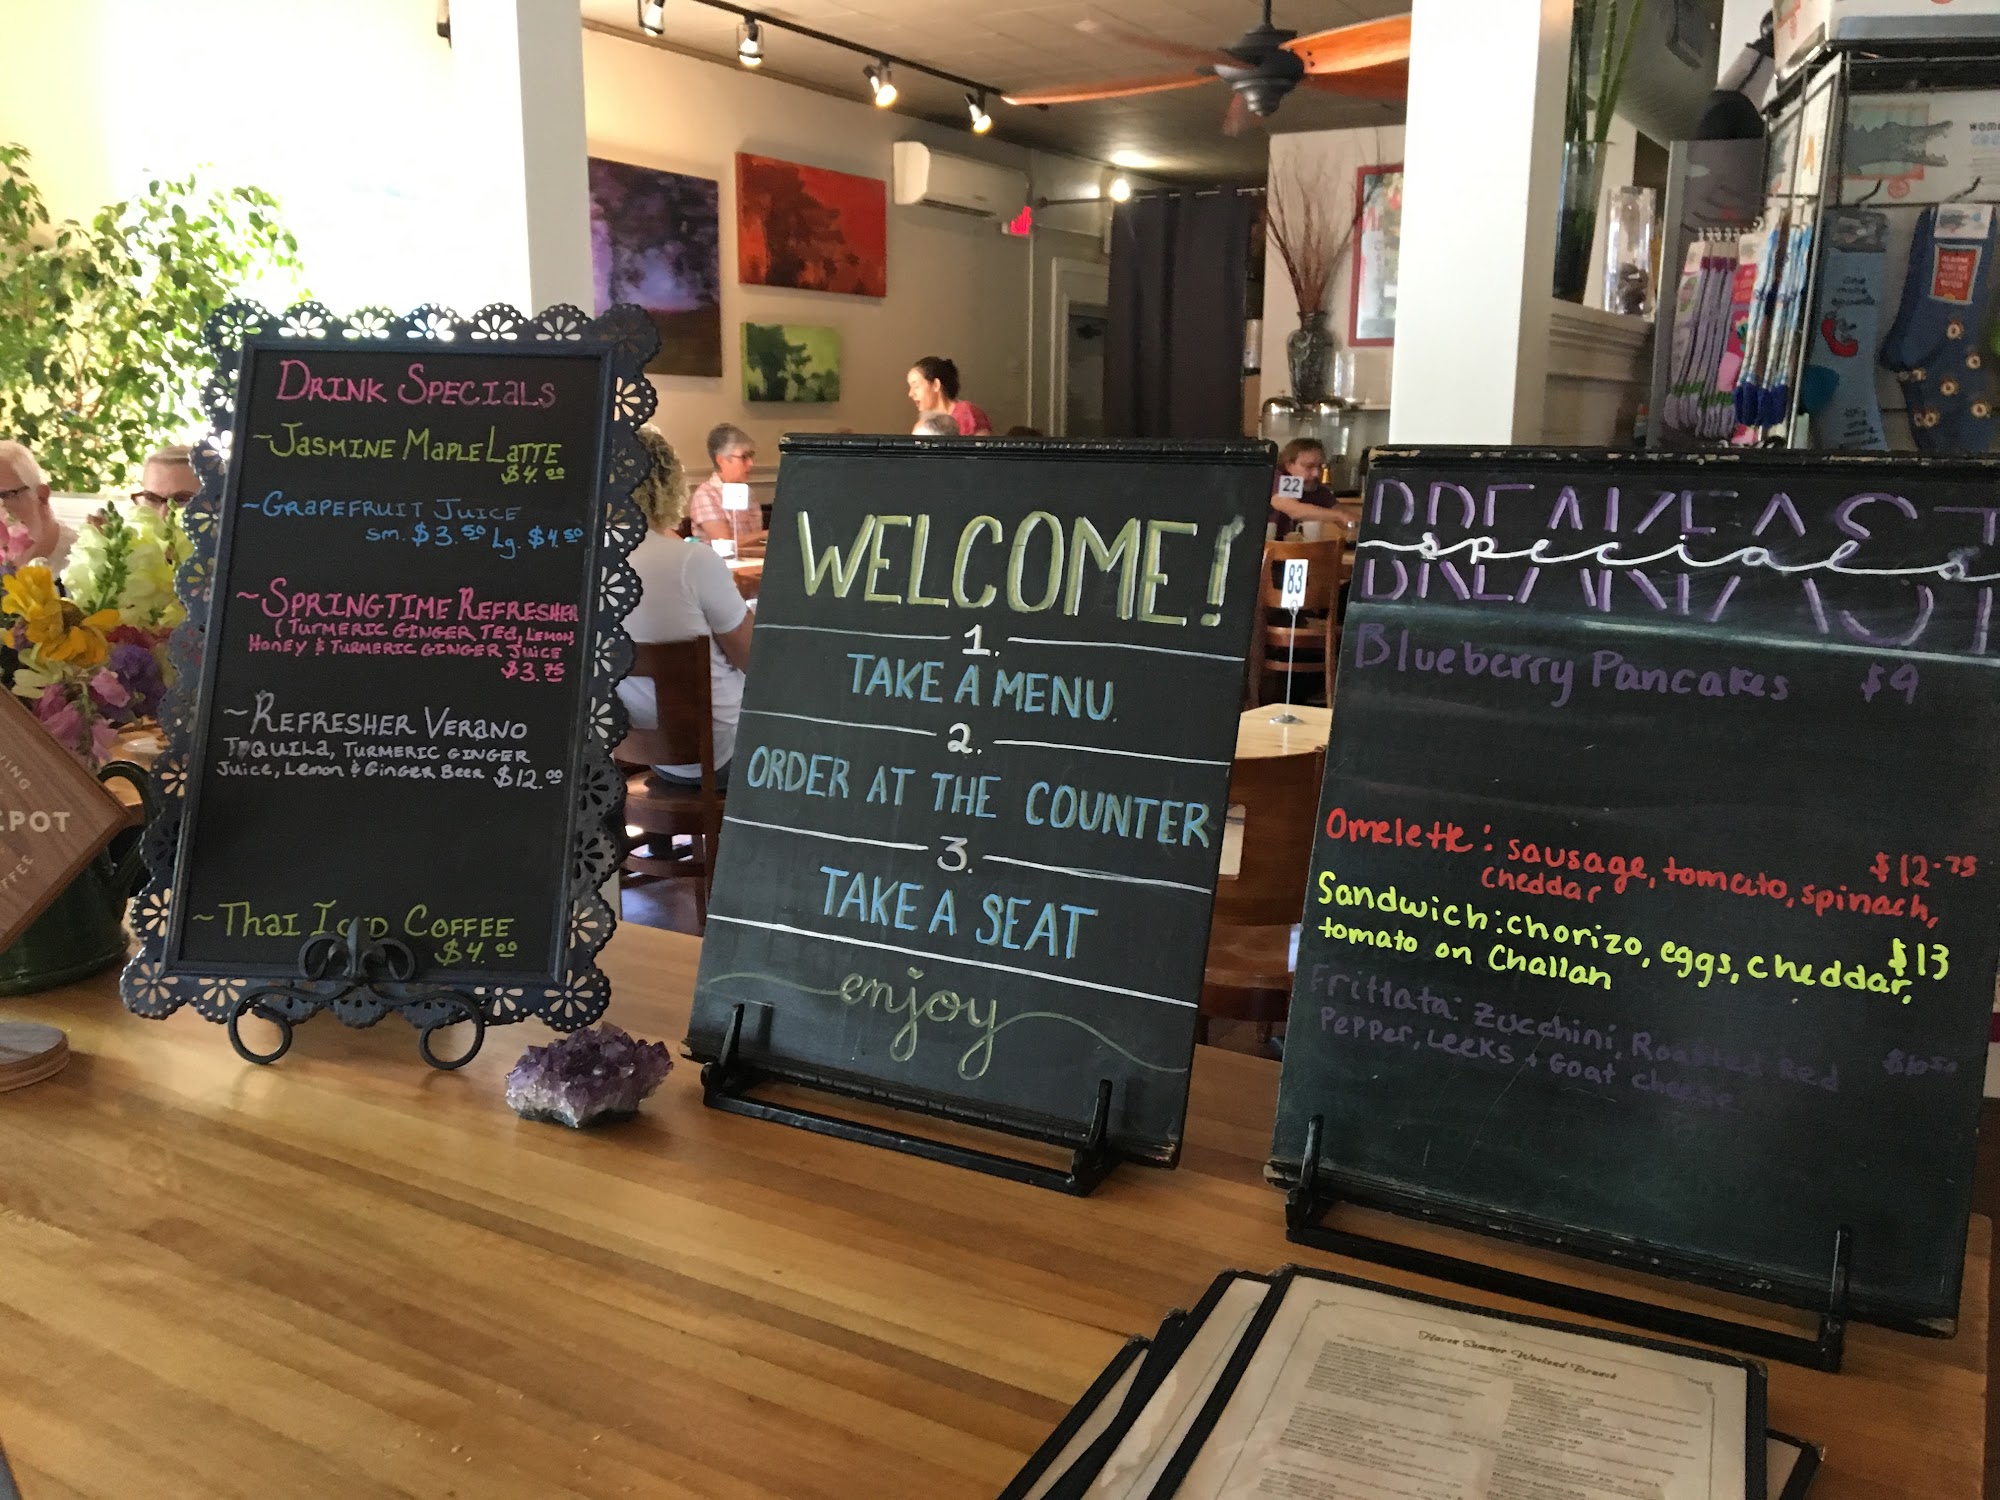 DRINK SPECIALS
~JASMINE MAPLE LATTE
$4.00
~GRAPEFRUIT JUICE
sm. $3.50 Lg. $4.50
~SPRINGTIME REFRESHER
(TURMERIC GINGER TEA, LEMON,
HONEY & TURMERIC GINGER JUICE
$3.75
~REFRESHER VERANO
TEQUILA, TURMERIC GINGER
JUICE, LEMON & GINGER BEER $12.00
~THAI ICED COFFEE
$4.00
WELCOME!
1.
TAKE A MENU.
2.
ORDER AT THE COUNTER
3.
TAKE A SEAT
enjoy
BREAKFAST
specials
Blueberry Pancakes $9
Omelette: sausage, tomato, spinach, $12.75
cheddar
Sandwich: chorizo, eggs, cheddar, $13
tomato on Challah
Frittata: Zucchini, Roasted Red
Pepper, Leeks + Goat cheese
22
83
EPOT
Haven Summer Weekend Brunch